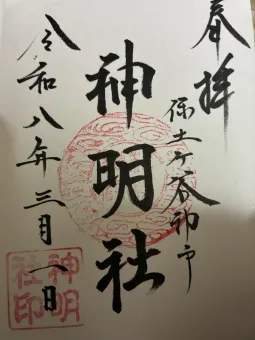 奉拝
保土ヶ谷神戸
神明社
令和八年三月一日
神明
社印